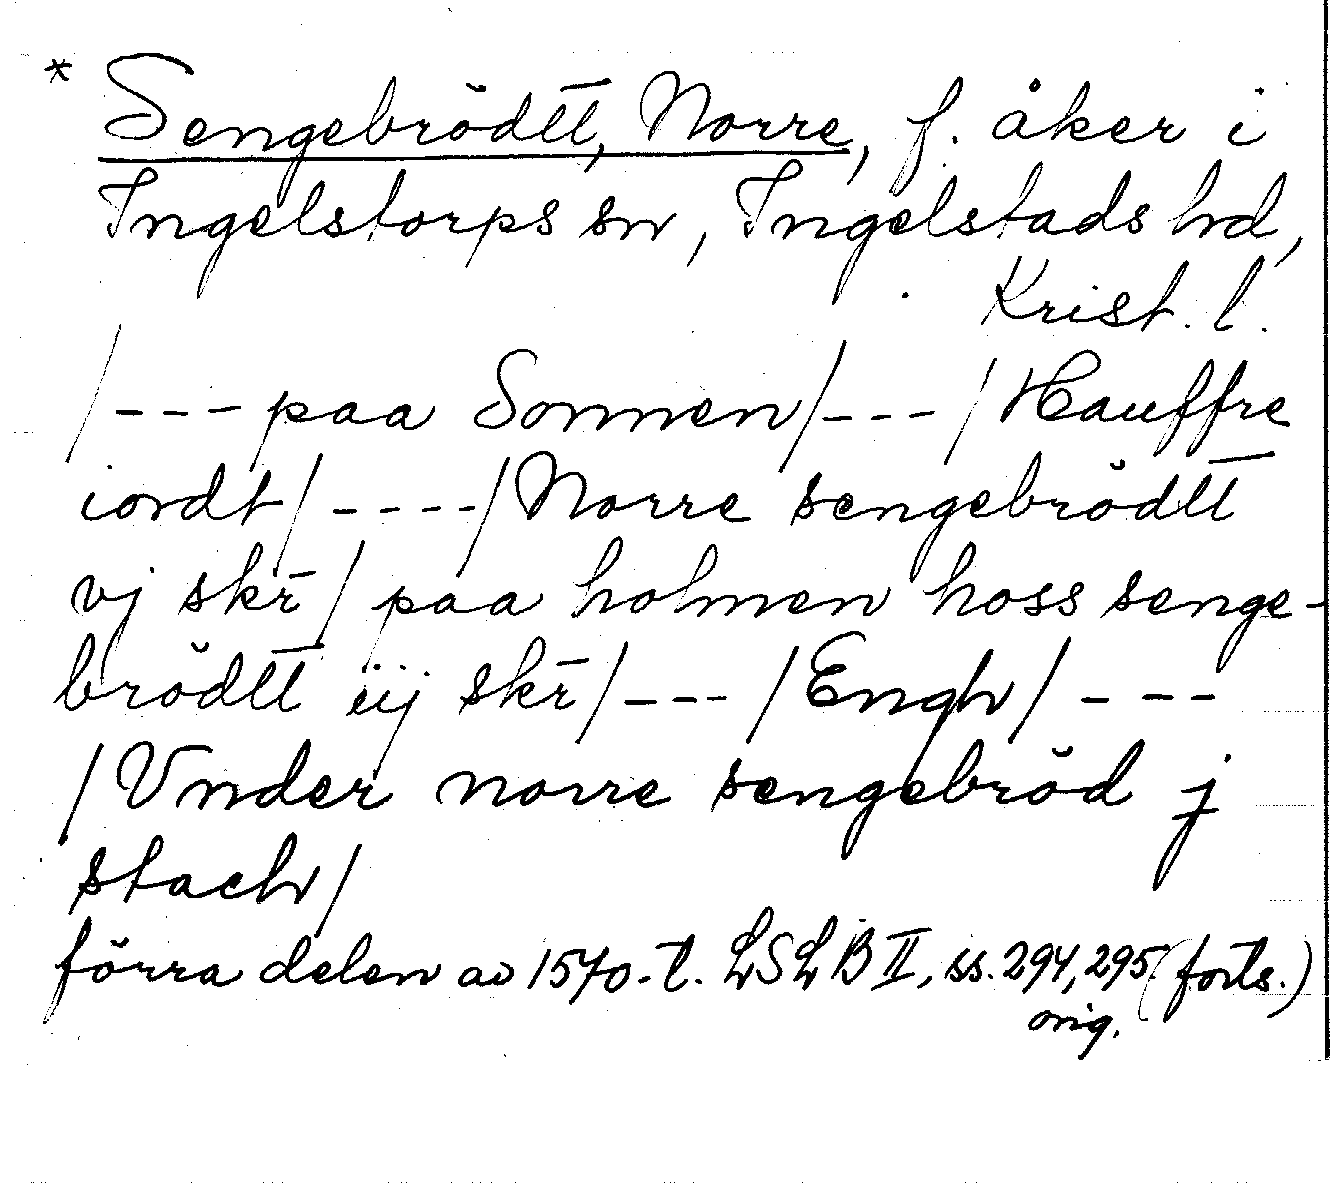 * Sengebrödtt, Norre, f. åker i
Ingelstorps sn, Ingelstads hd,
Krist. l.
/---paa Sonnen/---/Hauffre
iordt/----/Norre sengebrödtt
vj skr̄/ paa holmen hoss senge-
brödtt iij skr̄/---/Engh/ ---
/Vnder norre sengebröd j
stach/
förra delen av 1570-t. LSLB II, ss. 294, 295. (forts.)
orig.